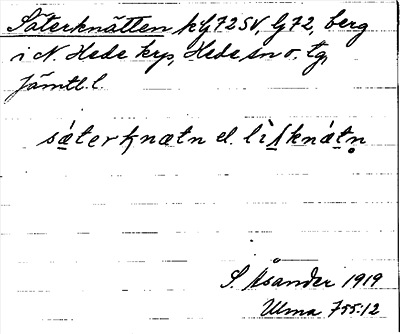 Säterknätten kbl 72 SV, bl 72, berg
i N. Hede krp, Hede sn o. tg,
Jämtl. l.
sátɛrknætn el. lìʃknǽtn̥
S. Åsander 1919
Ulma 755:12